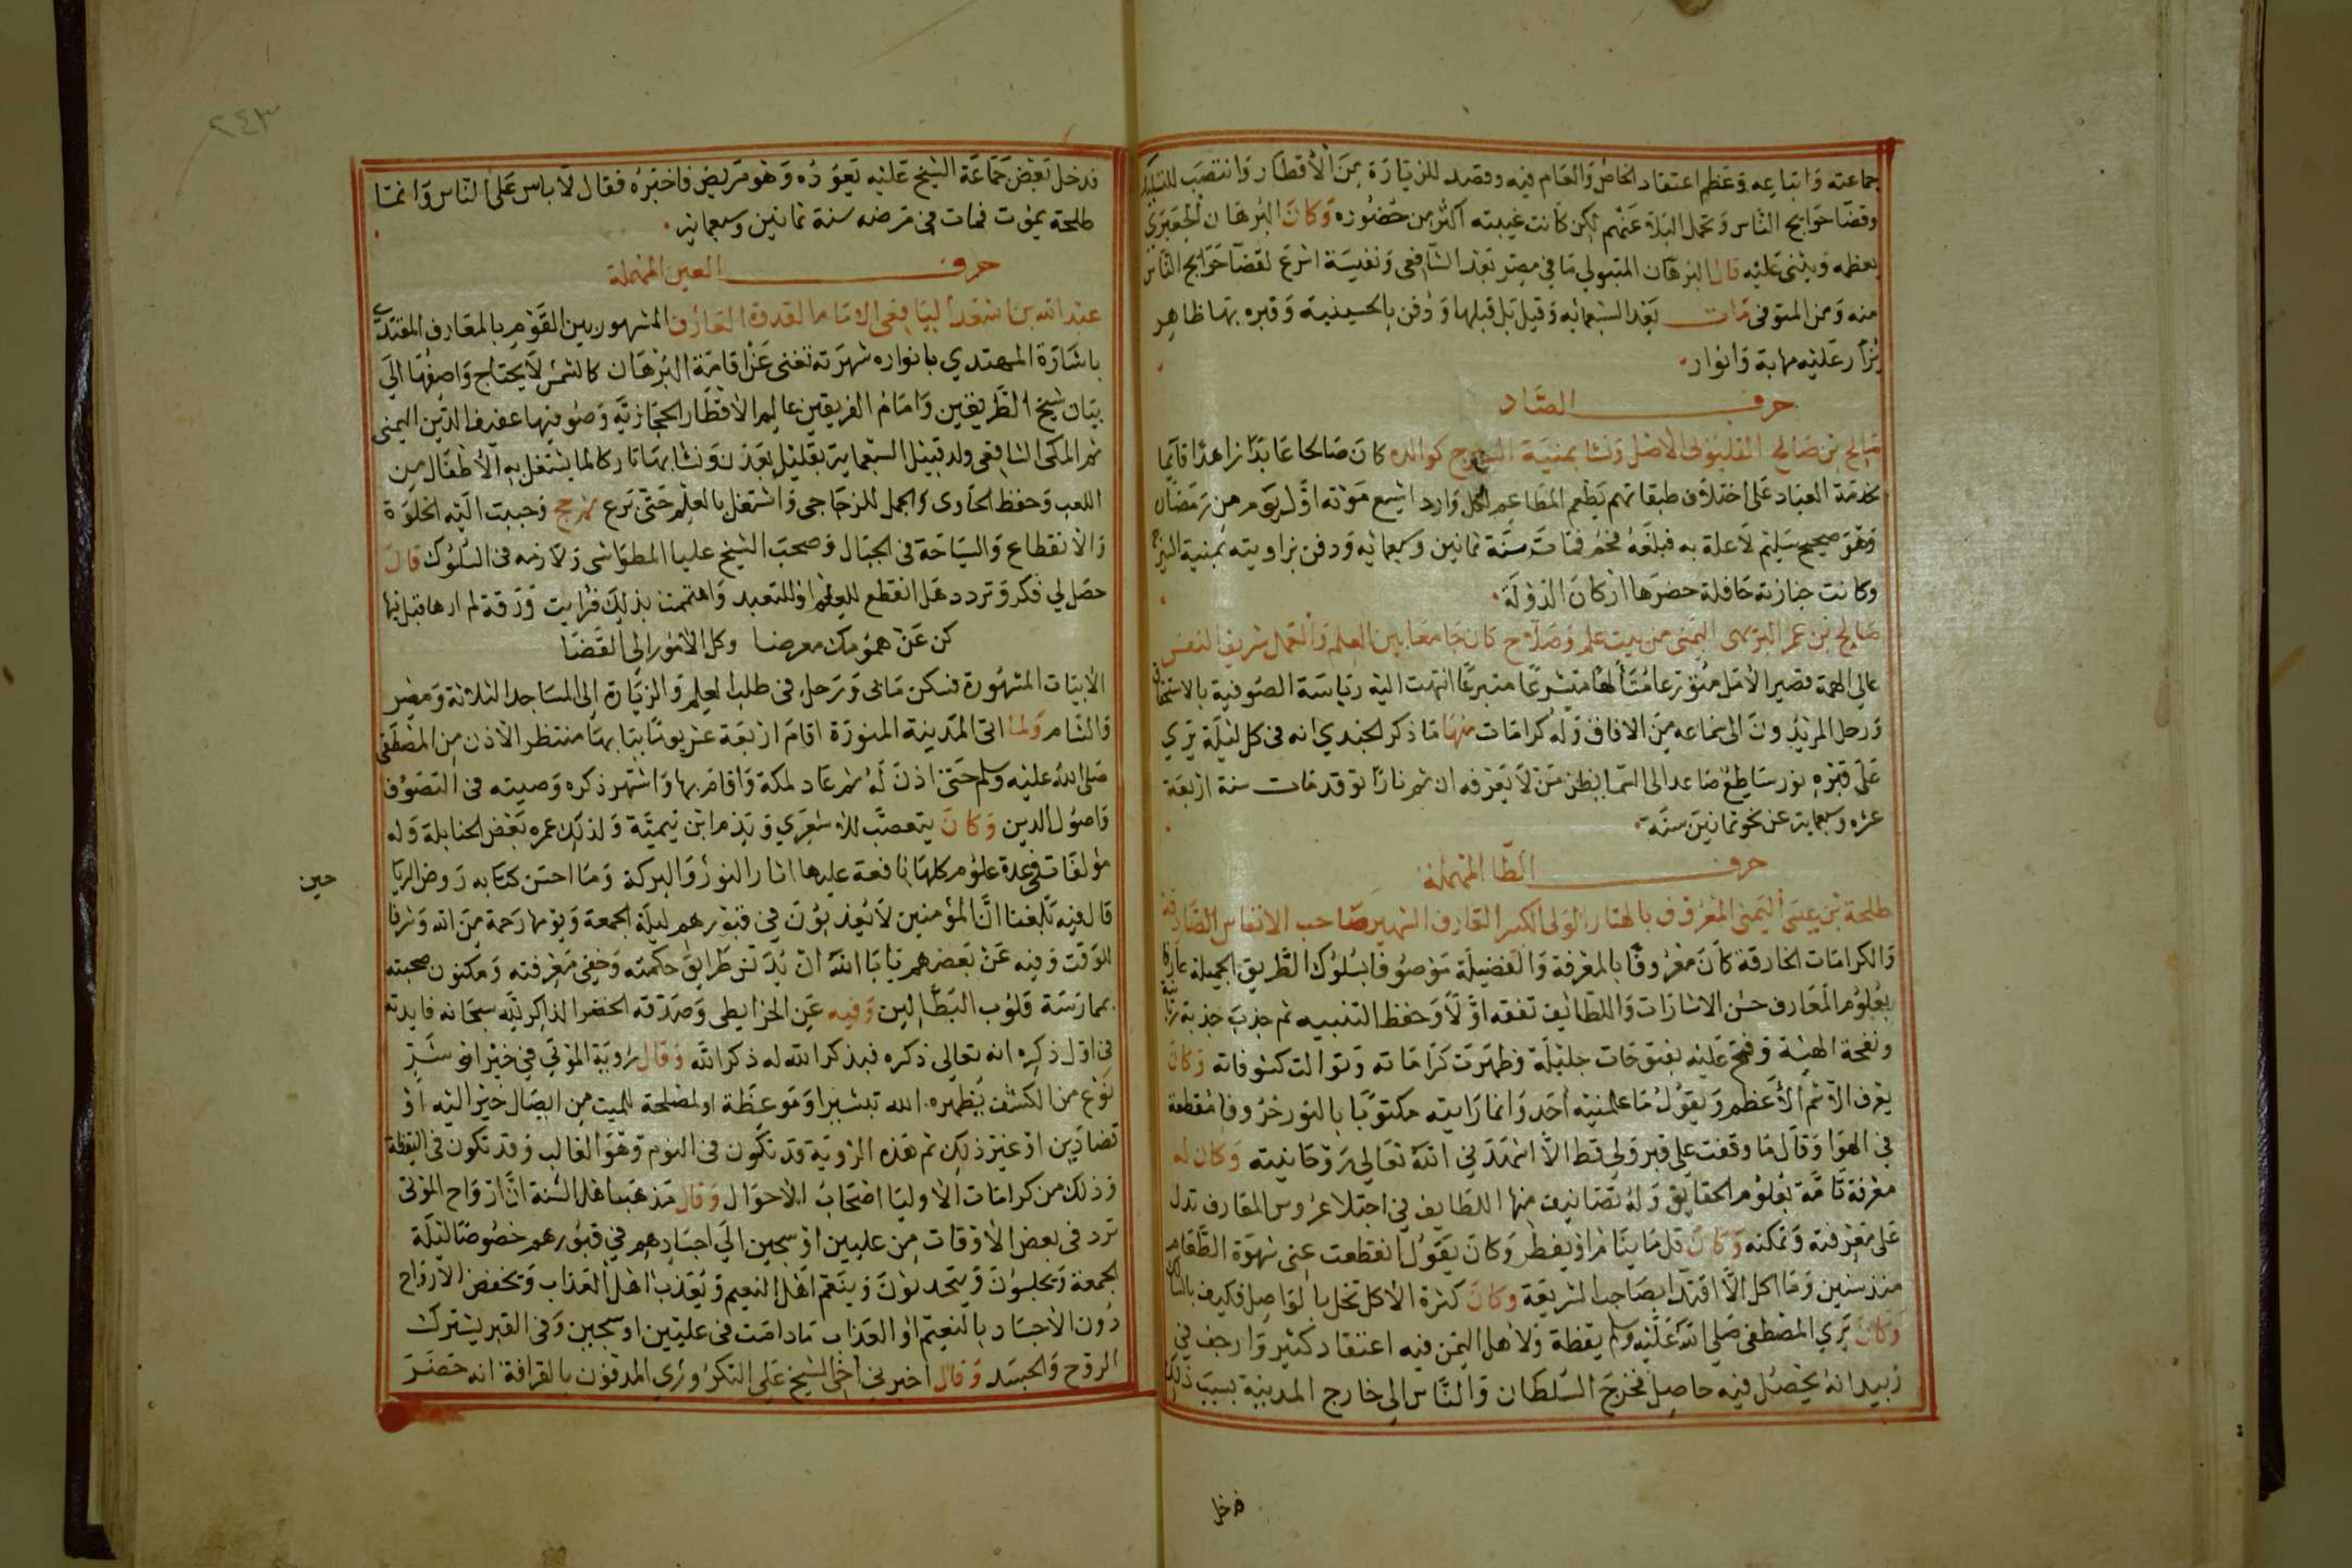 جماعته وَاتباعه وَعَظم اعتقاد الخاص وَالعَام فيه وقصد للزيَارَة مِنَ الأقطَار وَانتصَب للتسليك
وقضَا حوَايج النَّاس وَتحمل البَلاَء عَنهُم لكن كانت غيبته اكثر من حُضُوره وَكانَ البُرهَان الجعبَري
يعظمه وَيثنى عَليْه قال البرهَان المتبولي مَا في مِصر بَعْد الشافعى وَنفيسَة اسْرَع لقضَآ حَوَايج النَّاس
منه وَمن المتوفى مَات بَعْد السَّبعمائه وَقيل بل قبلها وَدُفن بالحسينية وَقبره بهَا ظاهِر
يُزَار عَليْه مهابة وَانوار
حرف الصَّاد
صَالح بن صَالح القليُوبى الأصْل وَنشَا بمنيَة السيرج كوالده كانَ صَالحا عَابدًا زاهدًا قآيمَا
بخدمَة العبَاد عَلى اختلاَف طبقاتهم يَطعم المطَاعِم لكل وَارد اشيع مَوْته اوَّل يَوْم من رَمَضان
وَهوَ صحيح سَليْم لاَعلة به فبلغَهُ فحُم فمَات سَنَة ثمانين وَسبعمائه وَدفن بزاويته بمنية السيرج
وكانت جنازته حَافلة حضرَها ارْكان الدَّوْلَة
صَالح بن عُمر البريهى اليَمَنى من بيت علم وَصَلاَح كان جَامعًا بين العِلم وَالعَمَل شريف النفس
عالى الهمة قصير الأمَل متَوَرعا مُتَأَلهًا متشرعًا متبرعًا انتهت اليْه ريَاسَة الصُوفية بالاستحقاق
وَرحل المريْدُونَ الى سَمَاعه مِنَ الافاق وَلَهُ كرامَات منهَا مَا ذكر الجندي انه فى كل ليْلَة يُرَي
عَلى قبْره نور سَاطِعُ صَاعد الى السَّمَا يَظن مَنْ لاَ يَعْرفه ان ثم نارًا توقد مَات سنة اربعَة
عشره وسبعماية عن نحو ثمانين سَنَة
حرف الطَّا المهْمَلة
طلحة بْن عيسَى اليَمنى المعْرُوف بالهتار الوَلى الكبير العَارف الشهير صَاحب الانفاس الصَّادقة
وَالكرامَات الخارقة كانَ مَعْرُوفًا بالمعْرفة وَالفضيلَة مَوْصُوفا بسُلوُك الطَّريق الجميلة عَارفا
بعُلوُم المَعَارف حسْن الاشارَات وَاللطَايف تفقه اوَّلاَ وَحفظ التنبيه ثم جذبَ جذبة ربَّانية
ونفحة الهيَة وَفتح عَليْه بفتوحَات جليْلة وَظهَرَت كرَامَاته وَتوَالت كشوفاته وَكانَ
يعْرف الاسْم الأَعظم وَيقوُل مَا علمنيْه أحَد وَانما رَايته مكتوبًا بالنور حرُوفا مُقطعَة
في الهوَا وَقال مَا وقفت على قبر وَلي قط الاَّ استمَدَني اللهَ تعَالى رَوْحَانيته وَكان له
معْرفة تَامَّة بعُلوُم الحقايق وَلهُ تصَانيف منها اللطَايف في اجتلاَ عرُوس المعَارف تدل
عَلى مَعْرفته وَتمكنه وَكانَ قل مَا ينَامُ اوْ يفطر وَكانَ يَقوُل انقطعت عنى شهْوَة الطَّعَام
منذ سنين وَمَا اكل الاَّ اقتِدَا بصَاحب الشريعَة وَكانَ كثرة الاكل تخل بالوَاصل فكيف بالسَّالك
وَكانَ يَرَي المصْطفى صَلى الله عَليْه وسلم يقظة وَلاَهل اليَمَن فيه اعتقاد كثير وَارجف في
زبيد انهُ يحْصُل فيه حاصِل فخرجَ السُّلطان وَالنَّاس الى خارج المدينة بسبَب ذلك
فدخل
٢٤٣
فدخل بَعْض جَمَاعَة الشيْخ عَليْه يَعوُده وَهوَ مَريض فاخبَرهُ فقال لاَ باس عَلى النَّاس وَانما
طلحة يمُوت فمَات في مَرضه سنة ثمانين وسبعمائة
حرف العين المهملة
عبْد الله بن اسْعَد اليَافعى الامَام القدوة العَارف المشهور بين القوْم بالمعَارف المقتدَى
باشارَة المهتدي بانواره شهرَته تغنى عَنْ اقامَة البُرْهَان كالشمْس لاَ يَحتاج وَاصفُهَا الَى
بيَان شيْخ الطَّريقين وَامَام الفريقين عالم الاقطَار الحجَازيَّة وَصُوفيهَا عفيف الدِّين اليمنى
ثم المكى الشافعى ولد قبيْل السبْعماية بقليْل بعَدَن وَنشَا بهَا تاركا لما يشتغل به الأَطفال من
اللعب وَحفظ الحَاوى وَالجمل للزجَاجى وَاشتغل بالعلم حَتى بَرع ثم حج وَحببت اليْه الخلوَة
وَالاْنقطاع وَالسيَاحَة في الجبَال وَصحبَ الشيْخ عليا المطوَاشى وَلاَزمه فى السُّلوُك قال
حصَل لي فكر وَتردد هَل انقطع للعلم اوْ للتعبد وَاهتممت بذلك فرَايت وَرَقة لم ارهَا قبل فيهَا
كن عَنْ همُومك معرضا وكل الأُمُور الى القَضَا
الاَبيَات المشهُورَة فسكن مَا بى وَرَحل فى طلب العِلم وَالزيَارة الى المسَاجد الثلاثة وَمصْر
وَالشام وَلمّا اتى المَدينة المنورَة اقامَ اربَعَة عشر يومًا ببَابهَا منتظر الاذن من المصْطفى
صَلى الله عليْه وسلم حَتى اذنَ لَهُ ثم عَاد لمكة وَاقامَ بها وَاشتهر ذكره وَصيته فى التصَوُّف
وَاصُول الدين وَكانَ يتعصَّب للاشعَرَي وَيَذم ابْن تيميَّة وَلذلك غمزه بَعْض الحنابلة وَله
مؤلفات فى عدة علوُم كلهَا نافعة عليها اثار النورُ وَالبركة وَمَا احسَن كتابه رَوض الريا
حين
قال فيْه بَلغنا انَّ المؤمنين لاَ يُعَذبوُنَ في قبُورهم ليْلَة الجمعة وَيوْمها رَحمة مِنَ الله وَشرفا
للوَقت وَفيه عَنْ بَعْضهم يابَا اللهُ انْ يُدَنسَ طرَايقَ حكمته وَخفى مَعْرفته وَمكنون محبته
بممارَسَة قلوُب البَطَّالين وَفيه عَن الخرَايطى وَصَدّقه الخضر الذاكر للَّه سبحَانه فايدته
فى اوّل ذكره انه تعالى ذكره فبذكر الله له ذكر اللَّه وَقال رُؤيَة الموْتى في خيْر اوْ شَرٍّ
نوْع من الكشف يُظهره الله تبشيرا وَمَوْعظة اولمصْلحة للميت من ايصَال خيْر اليْه اوْ
قضا دَيْن اوْ غيْر ذلك ثم هَذه الرُؤيَة قد تكوُن فى النوم وَهوَ الغالب وَقد تكون فى اليقظة
وَذلك من كرامَات الاوليَا اصْحَابُ الاحوَال وَقال مَذهَب اهْل السُّنة انَّ ارْوَاح الموْتى
ترد فى بعض الاوْقات من عليين اوْ سجين الَي اجسَادهم في قبُورهم خصُوصًا ليْلَة
الجمعة وَيجلسوُنَ وَيتحدثوُنَ وَيتنَعّم اهْل النعيم وَيُعَذبُ اهْل العَذَاب وَتخفض الاروَاح
دُون الاجسَاد بالنعيْم اوْ العَذاب مَا دَامَت فى عليّين اوْ سجّين وَفى القبْر يشترك
الروْح وَالجسَد وَقال اخبرني اخى الشيخ عَلى التكرُوري المدفون بالقرافة انه حضَر